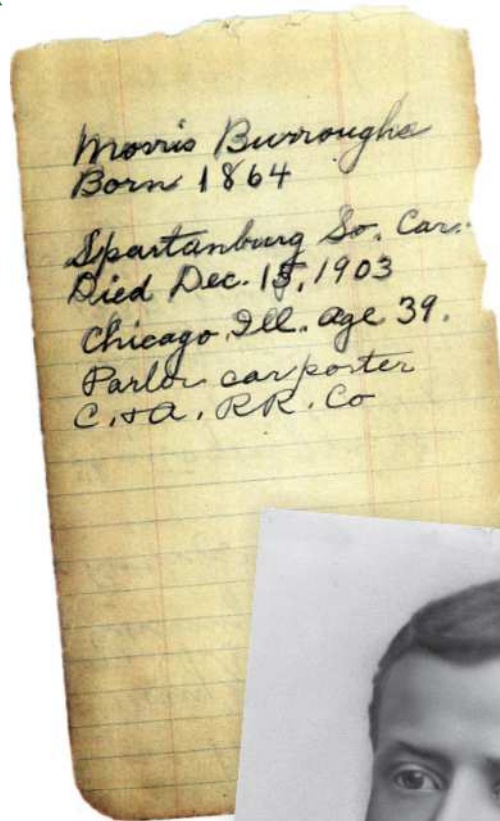 Morris Burroughs
Born 1864
Spartanburg So. Car.
Died Dec. 15, 1903
Chicago, Ill. age 39.
Parlor car porter
C. & A. RR. Co